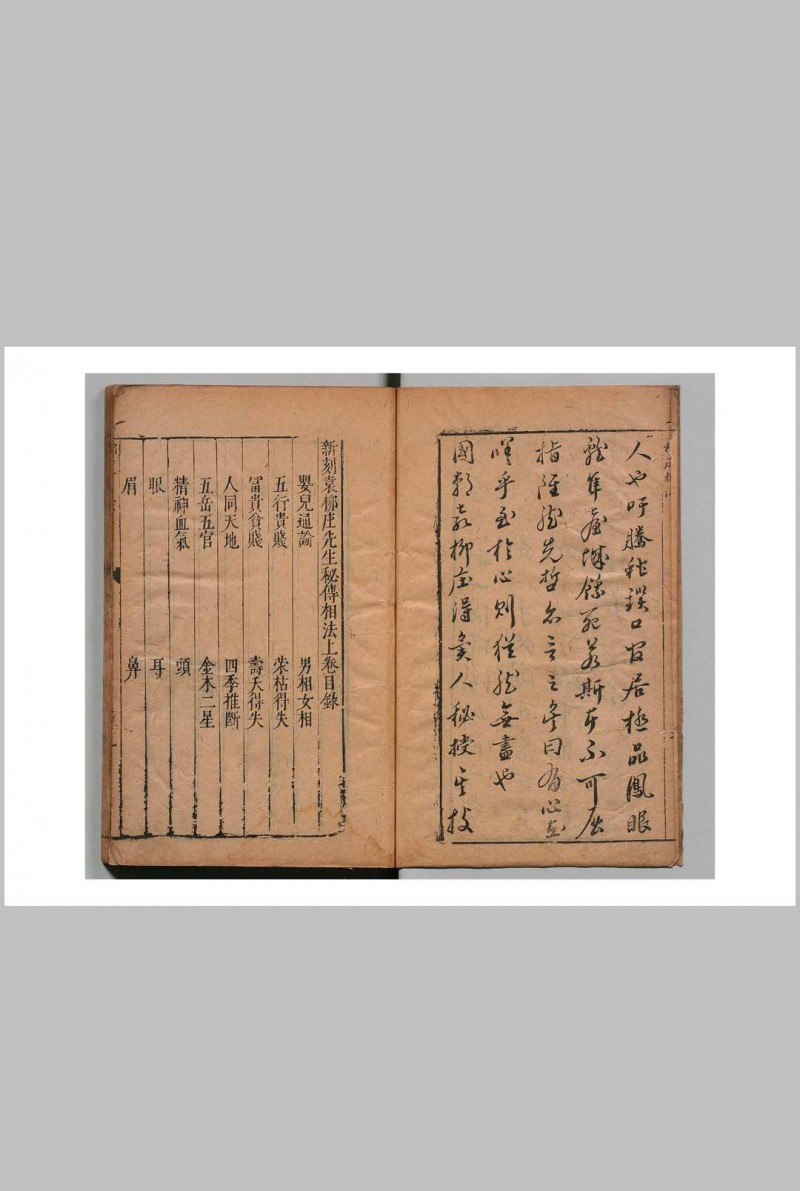 人也吁騰蛇鎖口官居極品鳳眼
龍準臺城餓死若斯者不可屈
指雖然先哲忽言之矣曰有心無
嗟乎至於心則猶然無盡也
國朝袁柳庄得異人秘授其技
新刻袁柳庄先生秘傳相法上卷目錄
嬰兒通論 男相女相
五行貴賤 荣枯得失
富貴貧賤 壽夭得失
人同天地 四季推斷
五岳五官 金木二星
精神血氣 頭
眼 耳
眉 鼻